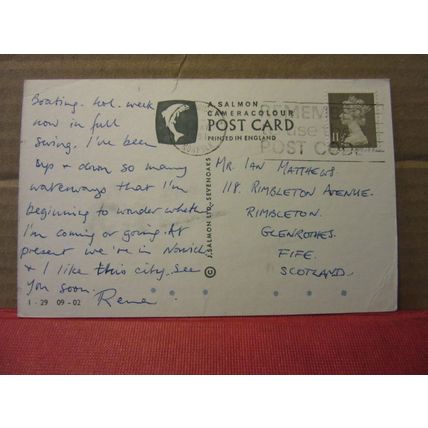 Boating. hol. week
now in full
swing. I've been
up & down so many
waterways that I'm
beginning to wonder whether
I'm coming or going. At
present we're in Norwich
& I like this city. See
you soon.
1 - 29 09 - 02
A SALMON
CAMERACOLOUR
POST CARD
PRINTED IN ENGLAND
J. SALMON LTD., SEVENOAKS
©
REMEMBER
use the
POST CODE
11½
MR. IAN MATTHEWS
118. RIMBLETON AVENUE.
RIMBLETON.
GLENROTHES.
FIFE.
SCOTLAND.